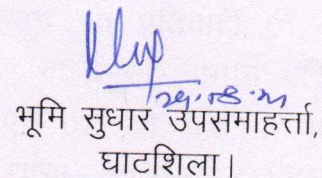 भूमि सुधार उपसमाहर्त्ता,
घाटशिला।